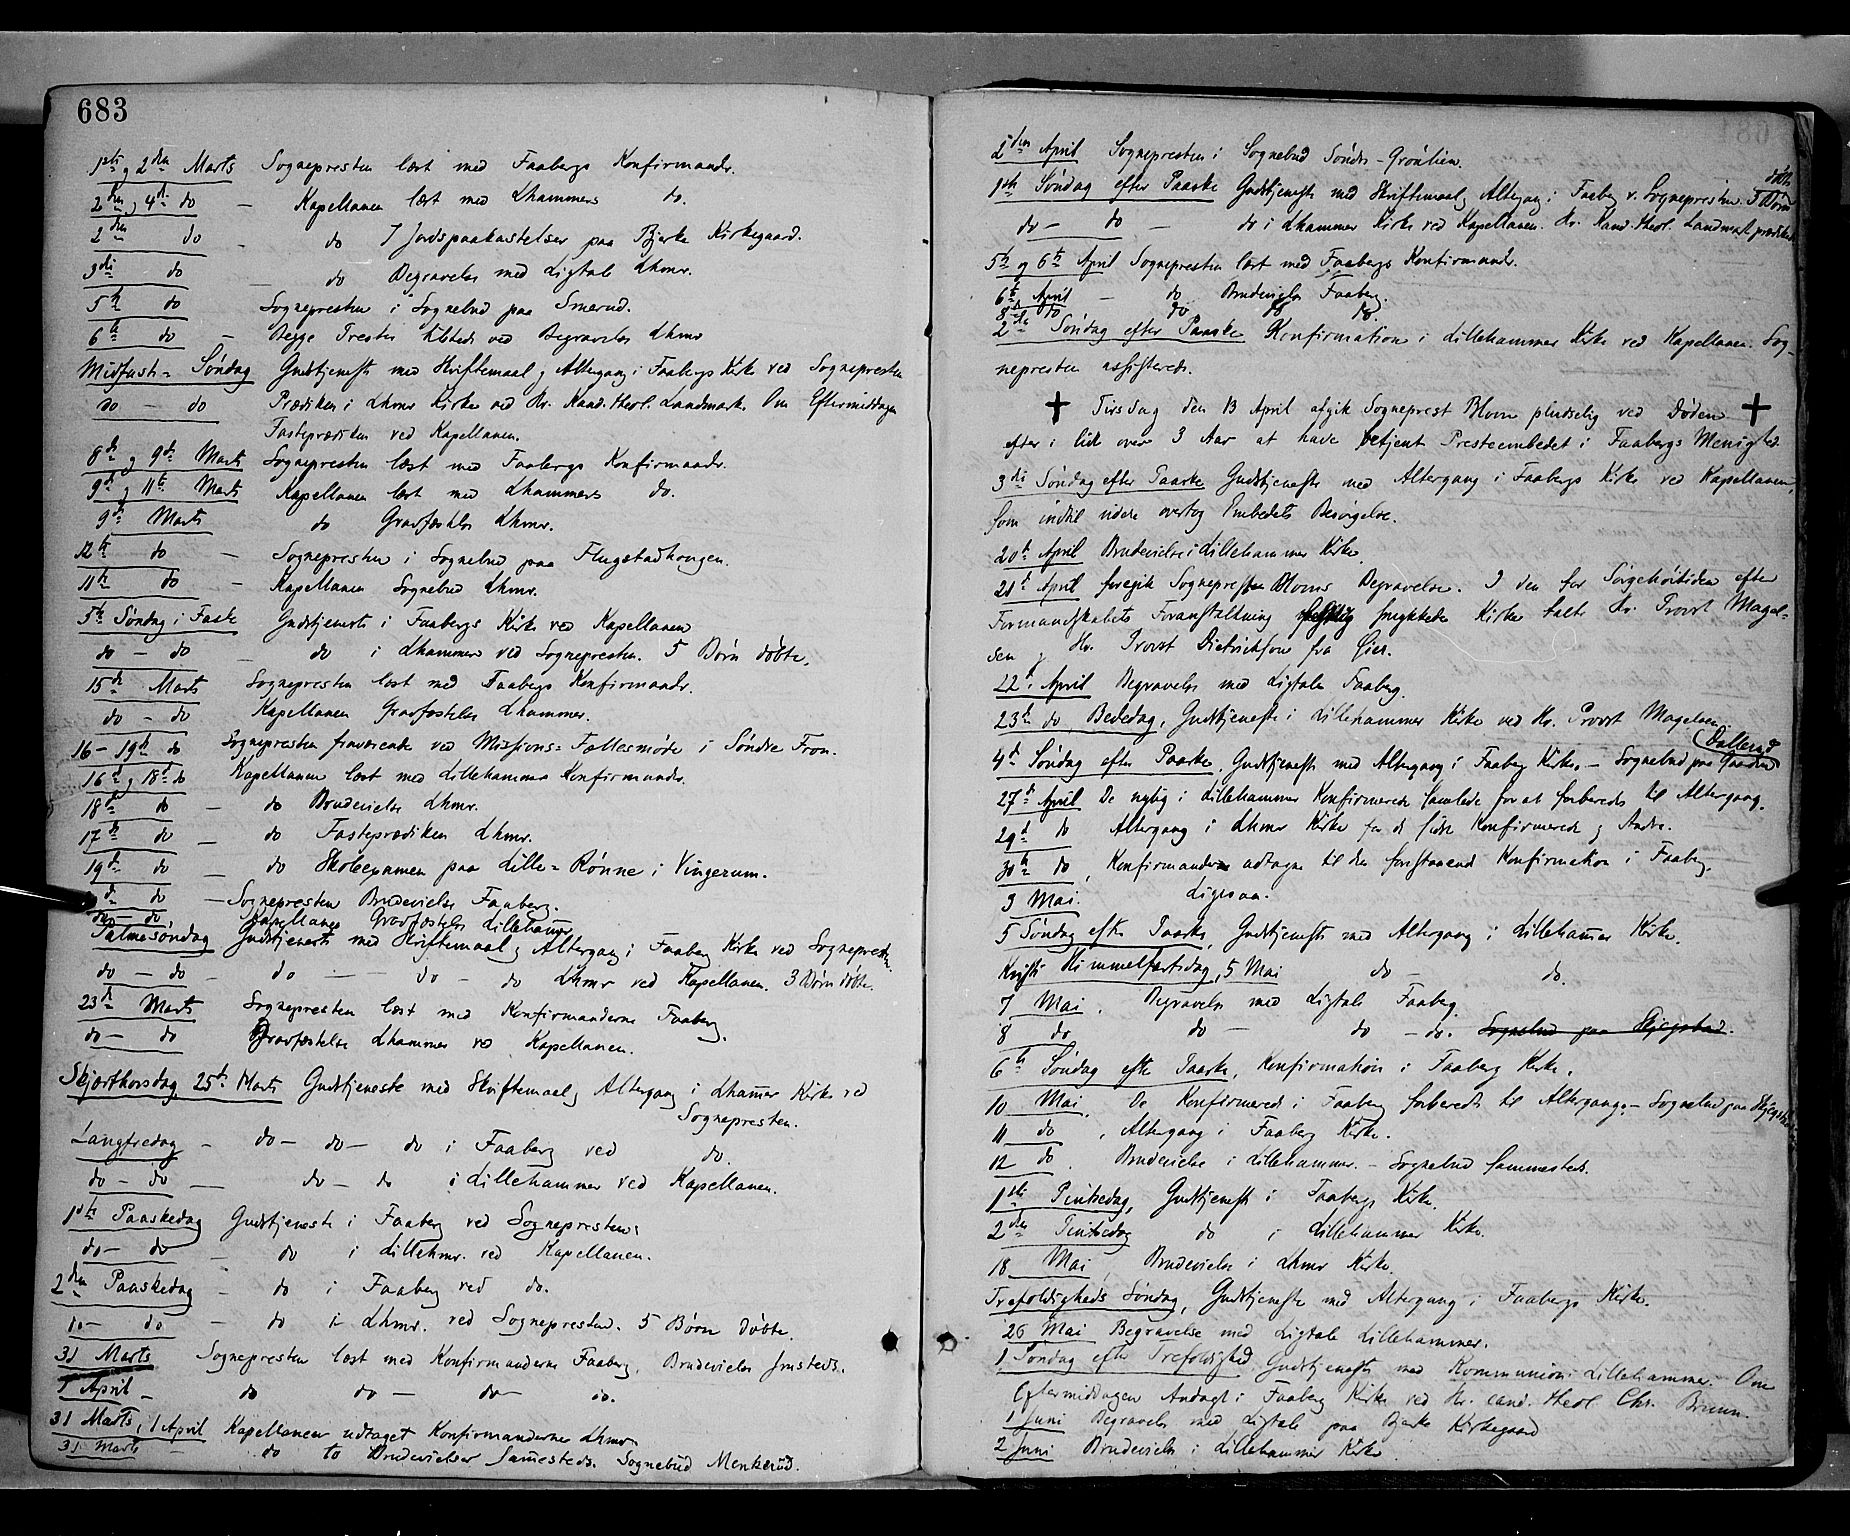 683
1ste og 2den Marts Sognepresten læst med Faabergs Konfirmander.
2den og 4de do — Kapellanen læst med Lhammers do.
2den do — do 7 Jordspaakastelser paa Bjerke Kirkegaard.
3die do — do Begravelse med Ligtale Lhmr.
5te do Sognepresten i Sognebud paa Smerud.
6te do — Begge Prester tilstede ved Begravelse Lhmr
Midfaste-Søndag Gudstjeneste med Skriftemaal og Altergang i Faabergs Kirke ved Sognepresten
do — do Prædiken i Lhmr Kirke ved Hr. Kand. theol. Landmark. Om Eftermiddagen
Fasteprædiken ved Kapellanen.
8de og 9de Marts Sognepresten læst med Faabergs Konfirmander.
9de og 11te Marts Kapellanen læst med Lhammers do.
9de Marts do Gravfæstelse Lhmr.
12te do — Sognepresten i Sognebud paa Flugstadhougen.
11te do — Kapellanen Sognebud Lhmr.
5te Søndag i Faste Gudstjeneste i Faabergs Kirke ved Kapellanen
do — do — do i Lhammer ved Sognepresten. 5 Børn døbte.
15de Marts Sognepresten læst med Faabergs Konfirmander.
do — do Kapellanen Gravfæstelse Lhammer.
16 — 19de do Sognepresten fraværende ved Missions-Fællesmøde i Søndre Fron.
16de og 18de do Kapellanen læst med Lillehammer Konfirmander.
18de do — do Brudevielse Lhmr.
17de do — do Fasteprædiken Lhmr.
19de do — do Skoleexamen paa Lille-Rønne i Vingerum.
de do — Sognepresten Brudevielse Faaberg.
do — do. Kapellanen Gravfæstelse Lillehammer
Palmesøndag Gudstjeneste med Skriftemaal og Altergang i Faaberg Kirke ved Sognepresten.
do — do — do — do — do Lhmr ved Kapellanen. 3 Børn døbte.
23de Marts Sognepresten læst med Konfirmanderne Faaberg.
do — do Gravfæstelse Lhammer ved Kapellanen.
Skjærthorsdag, 25de Marts Gudstjeneste med Skriftemaal og Altergang i Lhammer Kirke ved
Sognepresten.
Langfredag — do — do — do i Faaberg ved do.
do — do — do — do i Lillehammer ved Kapellanen.
1ste Paaskedag Gudstjeneste i Faaberg ved Sognepresten.
do — do — do i Lillehmr. ved Kapellanen.
2den Paaskedag — do i Faaberg ved do.
do — do — do i Lhmr. ved Sognepresten. 5 Børn døbte.
31 Marts Sognepresten læst med Konfirmanderne Faaberg. Brudevielse smsteds.
1 April — do do — do — do.
31 Marts, 1 April Kapellanen udtaget Konfirmanderne Lhmr.
31 Marts — do to Brudevielser Sammesteds. Sognebud Menkerud.
2den April Sognepresten i Sognebud Søndre-Grønlien.
1ste Søndag efter Paaske Gudstjeneste med Skriftemaal og Altergang i Faaberg v. Sognepresten. 7 Børn døbte
do — do — do i Lhammer Kirke ved Kapellanen. Hr. Kand. theol. Landmark prædikede
5te og 6te April Sognepresten læst med Faabergs Konfirmander.
6te April — do Brudevielse Faaberg.
8de do do do do.
2den Søndag efter Paaske Konfirmation i Lillehammer Kirke ved Kapellanen. Sog-
nepresten assisterede.
✝ Tirsdag den 13 April afgik Sogneprest Blom pludselig ved Døden ✝
efter i lidt over 3 Aar at have betjent Presteembedet i Faabergs Menighed
3die Søndag efter Paaske Gudstjeneste med Altergang i Faabergs Kirke ved Kapellanen,
som indtil videre overtog Embedets Besørgelse.
20de April Brudevielse i Lillehammer Kirke.
21de April foregik Sognepresten Bloms Begravelse. I den for Sørgehøitiden efter
Formandskabets Foranstaltning smykkede Kirke talte Hr. Provst Magel-
sen og Hr. Provst Dietrichson fra Øier.
22de April Begravelse med Ligtale Faaberg.
23de do, Bededag, Gudstjeneste i Lillehammer Kirke ved Hr. Provst Magelsen.
4de Søndag efter Paaske, Gudstjeneste med Altergang i Faaberg Kirke. — Sognebud paa Gaarden Dallerud
27de April De nylig i Lillehammer Konfirmerede samlede for at forberedes til Altergang.
29de do Altergang i Lhmr Kirke for de sidst Konfirmerede og Andre.
30te do, Konfirmanderne udtagne til den forestaaende Konfirmation i Faaberg.
3 Mai. Ligesaa.
5 Søndag efter Paaske, Gudstjeneste med Altergang i Lillehammer Kirke.
Kristi Himmelfartsdag, 5 Mai do — do.
7 Mai. Begravelse med Ligtale Faaberg.
8 do do — do — do. Sognebud paa Skjegstad.
6te Søndag efter Paaske, Konfirmation i Faaberg Kirke.
10 Mai. De Konfirmerede i Faaberg forberedte til Altergang. — Sognebud paa Skjegstad
11 do, Altergang i Faaberg Kirke.
12 do. Brudevielse i Lillehammer. — Sognebud sammesteds.
1ste Pintsedag, Gudstjeneste i Faabergs Kirke.
2den Pintsedag do i Lillehammer Kirke.
18 Mai Brudevielse i Lhmr Kirke.
Trefoldigheds Søndag, Gudstjeneste med Altergang i Faabergs Kirke.
26 Mai Begravelse med Ligtale Lillehammer.
1 Søndag efter Trefoldighed Gudstjeneste med Kommunion i Lillehammer. Om
Eftermiddagen Andagt i Faaberg Kirke ved Hr. cand. theol. Chr. Bruun.
1 Juni Begravelse med Ligtale paa Bjerke Kirkegaard
2 Juni Brudevielse i Lillehammer Kirke